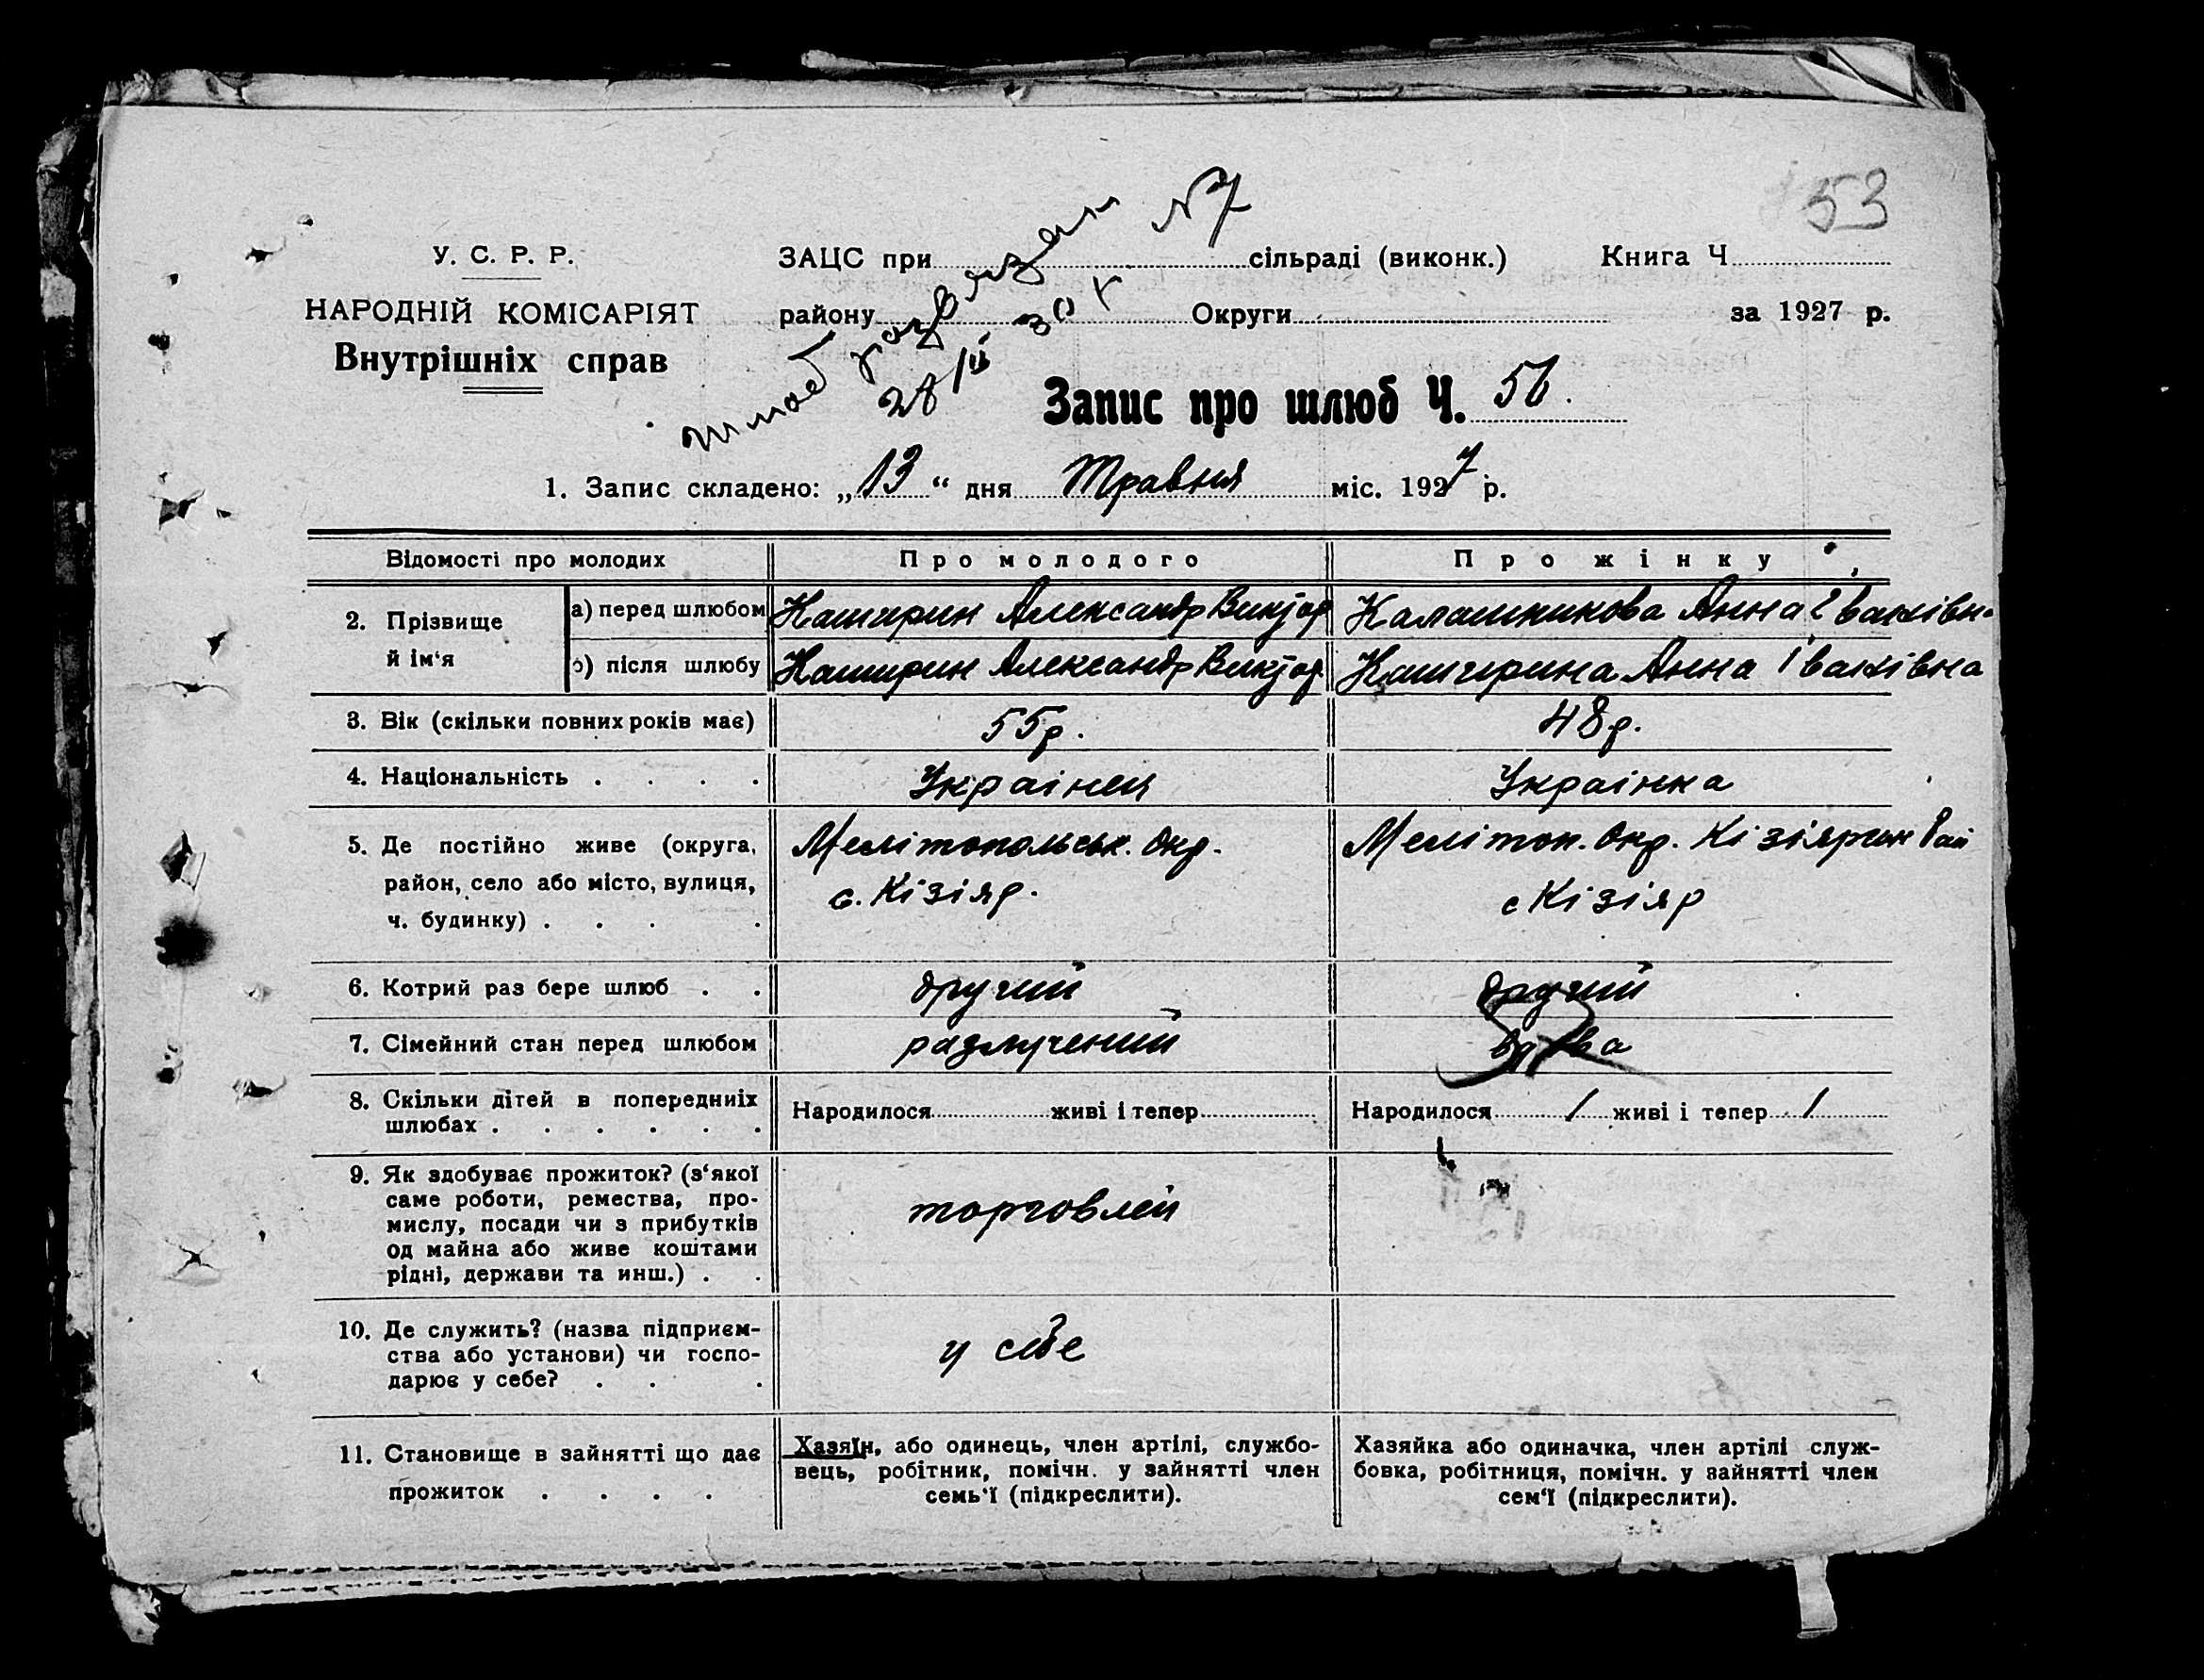 53
шлюб розвязан N7
28/III 30 г
У. С. Р. Р.
НАРОДНІЙ КОМІСАРІЯТ
Внутрішніх справ
ЗАЦС при сільраді (виконк.) Книга Ч
району Округи за 1927 р.
Запис про шлюб Ч. 56.
1. Запис складено: „13“ дня Травня міс. 1927 р.
Відомості про молодих Про молодого Про жінку
2. Прізвище й ім‘я
а) перед шлюбом Каширин Александр Виктор Калашникова Анна Іванівн.
б) після шлюбу Каширин Александр Виктор. Каширина Анна Іванівна
3. Вік (скільки повних років має) 55р. 48р.
4. Національність . . . . Украінец Украінка
5. Де постійно живе (округа,
район, село або місто, вулиця,
ч. будинку) . . . .
Мелітопольськ. Окр.
с. Кізіяр.
Мелітоп. Окр. Кізіярськ Рай
с Кізіяр
6. Котрий раз бере шлюб . . другий другий
7. Сімейний стан перед шлюбом разлучений вдова
8. Скільки дітей в попередніх
шлюбах . . . . . .
Народилося живі і тепер
Народилося 1 живі і тепер 1
9. Як здобуває прожиток? (з‘якої
саме роботи, ремества, про-
мислу, посади чи з прибутків
од майна або живе коштами
рідні, держави та инш.) . .
торговлей
10. Де служить? (назва підприєм-
ства або установи) чи госпо-
дарює у себе? . . .
у себе
11. Становище в зайнятті що дає
прожиток . . . .
Хазяїн, або одинець, член артілі, службо-
вець, робітник, помічн. у зайнятті член
семь‘ї (підкреслити).
Хазяйка або одиначка, член артілі служ-
бовка, робітниця, помічн. у зайнятті член
сем‘ї (підкреслити).